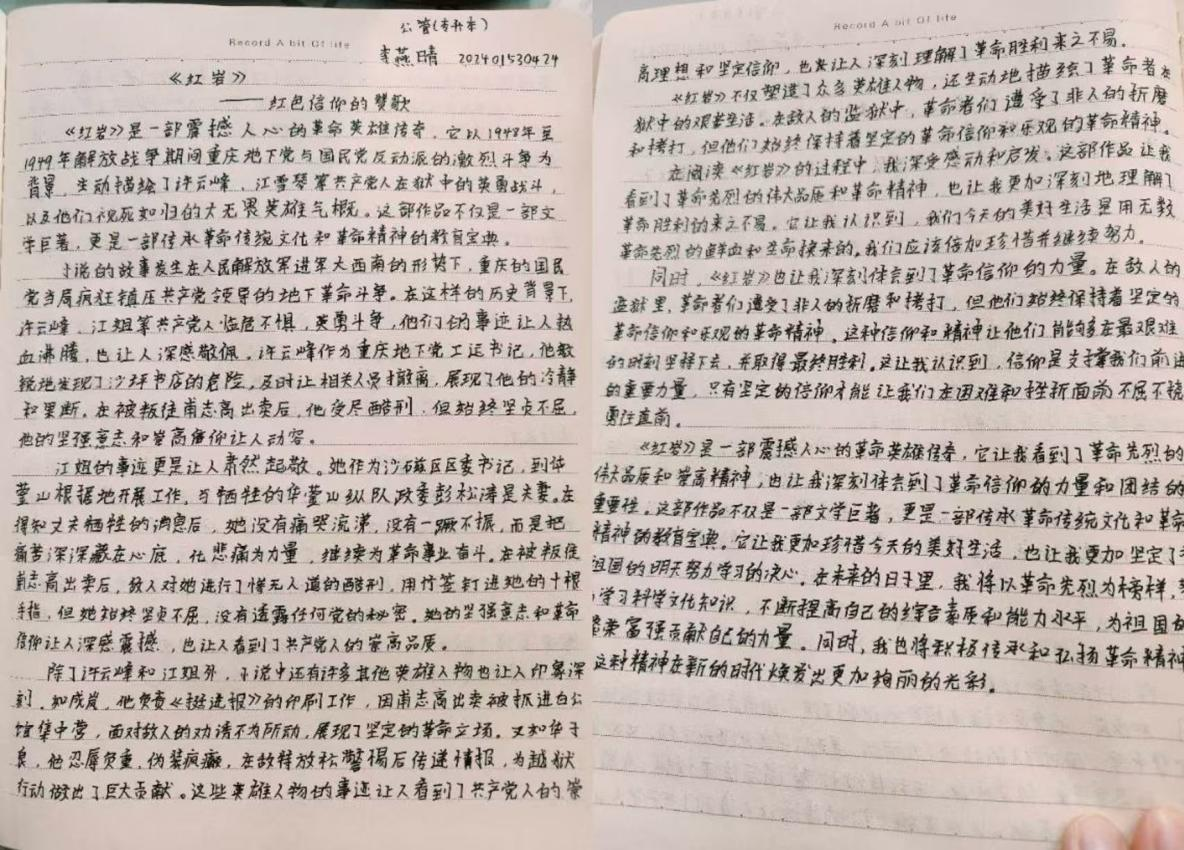 公管(专升本)
Record A bit Of life
李燕晴 202401530424
《红岩》
——红色信仰的赞歌
《红岩》是一部震撼人心的革命英雄传奇,它以1948年至
1949年解放战争期间重庆地下党与国民党反动派的激烈斗争为
背景,生动描绘了许云峰、江雪琴等共产党人在狱中的英勇战斗,
以及他们视死如归的大无畏英雄气概。这部作品不仅是一部文
学巨著,更是一部传承革命传统文化和革命精神的教育宝典。
小说的故事发生在人民解放军进军大西南的形势下,重庆的国民
党当局疯狂镇压共产党领导的地下革命斗争。在这样的历史背景下,
许云峰、江姐等共产党人临危不惧,英勇斗争,他们的事迹让人热
血沸腾,也让人深感敬佩。许云峰作为重庆地下党工运书记,他敏
锐地发现了沙坪书店的危险,及时让相关人员撤离,展现了他的冷静
和果断。在被叛徒甫志高出卖后,他受尽酷刑,但始终坚贞不屈,
他的坚强意志和崇高信仰让人动容。
江姐的事迹更是让人肃然起敬。她作为沙磁区区委书记,到华
蓥山根据地开展工作。与牺牲的华蓥山纵队政委彭松涛是夫妻。在
得知丈夫牺牲的消息后,她没有痛哭流涕,没有一蹶不振,而是把
痛苦深深藏在心底,化悲痛为力量,继续为革命事业奋斗。在被叛徒
甫志高出卖后,敌人对她进行了惨无人道的酷刑,用竹签钉进她的十根
手指,但她始终坚贞不屈,没有透露任何党的秘密。她的坚强意志和革命
信仰让人深感震撼,也让人看到了共产党人的崇高品质。
除了许云峰和江姐外,小说中还有许多其他英雄人物也让人印象深
刻。如成岗,他负责《挺进报》的印刷工作,因甫志高出卖被抓进白公
馆集中营,面对敌人的劝诱不为所动,展现了坚定的革命立场。又如华子
良,他忍辱负重,伪装疯癫,在敌特放松警惕后传递情报,为越狱
行动做出了巨大贡献。这些英雄人物的事迹让人看到了共产党人的崇
Record A bit Of life
高理想和坚定信仰,也让人深刻理解了革命胜利来之不易。
《红岩》不仅塑造了众多英雄人物,还生动地描绘了革命者在
狱中的艰苦生活。在敌人的监狱中,革命者们遭受了非人的折磨
和拷打,但他们始终保持着坚定的革命信仰和乐观的革命精神。
在阅读《红岩》的过程中,我深受感动和启发。这部作品让我
看到了革命先烈的伟大品质和革命精神,也让我更加深刻地理解了
革命胜利的来之不易。它让我认识到,我们今天的美好生活是用无数
革命先烈的鲜血和生命换来的。我们应该倍加珍惜并继续努力。
同时,《红岩》也让我深刻体会到了革命信仰的力量。在敌人的
监狱里,革命者们遭受了非人的折磨和拷打,但他们始终保持着坚定的
革命信仰和乐观的革命精神。这种信仰和精神让他们能够在最艰难
的时刻坚持下去,并取得最终胜利。这让我认识到,信仰是支撑我们前进
的重要力量,只有坚定的信仰才能让我们在困难和挫折面前不屈不挠
勇往直前。
《红岩》是一部震撼人心的革命英雄传奇,它让我看到了革命先烈的
伟大品质和崇高精神,也让我深刻体会到了革命信仰的力量和团结的
重要性。这部作品不仅是一部文学巨著,更是一部传承革命传统文化和革命
精神的教育宝典。它让我更加珍惜今天的美好生活,也让我更加坚定了
祖国的明天努力学习的决心。在未来的日子里,我将以革命先烈为榜样,
学习科学文化知识,不断提高自己的综合素质和能力水平,为祖国的
繁荣富强贡献自己的力量。同时,我也将积极传承和弘扬革命精神
这种精神在新的时代焕发出更加绚丽的光彩。